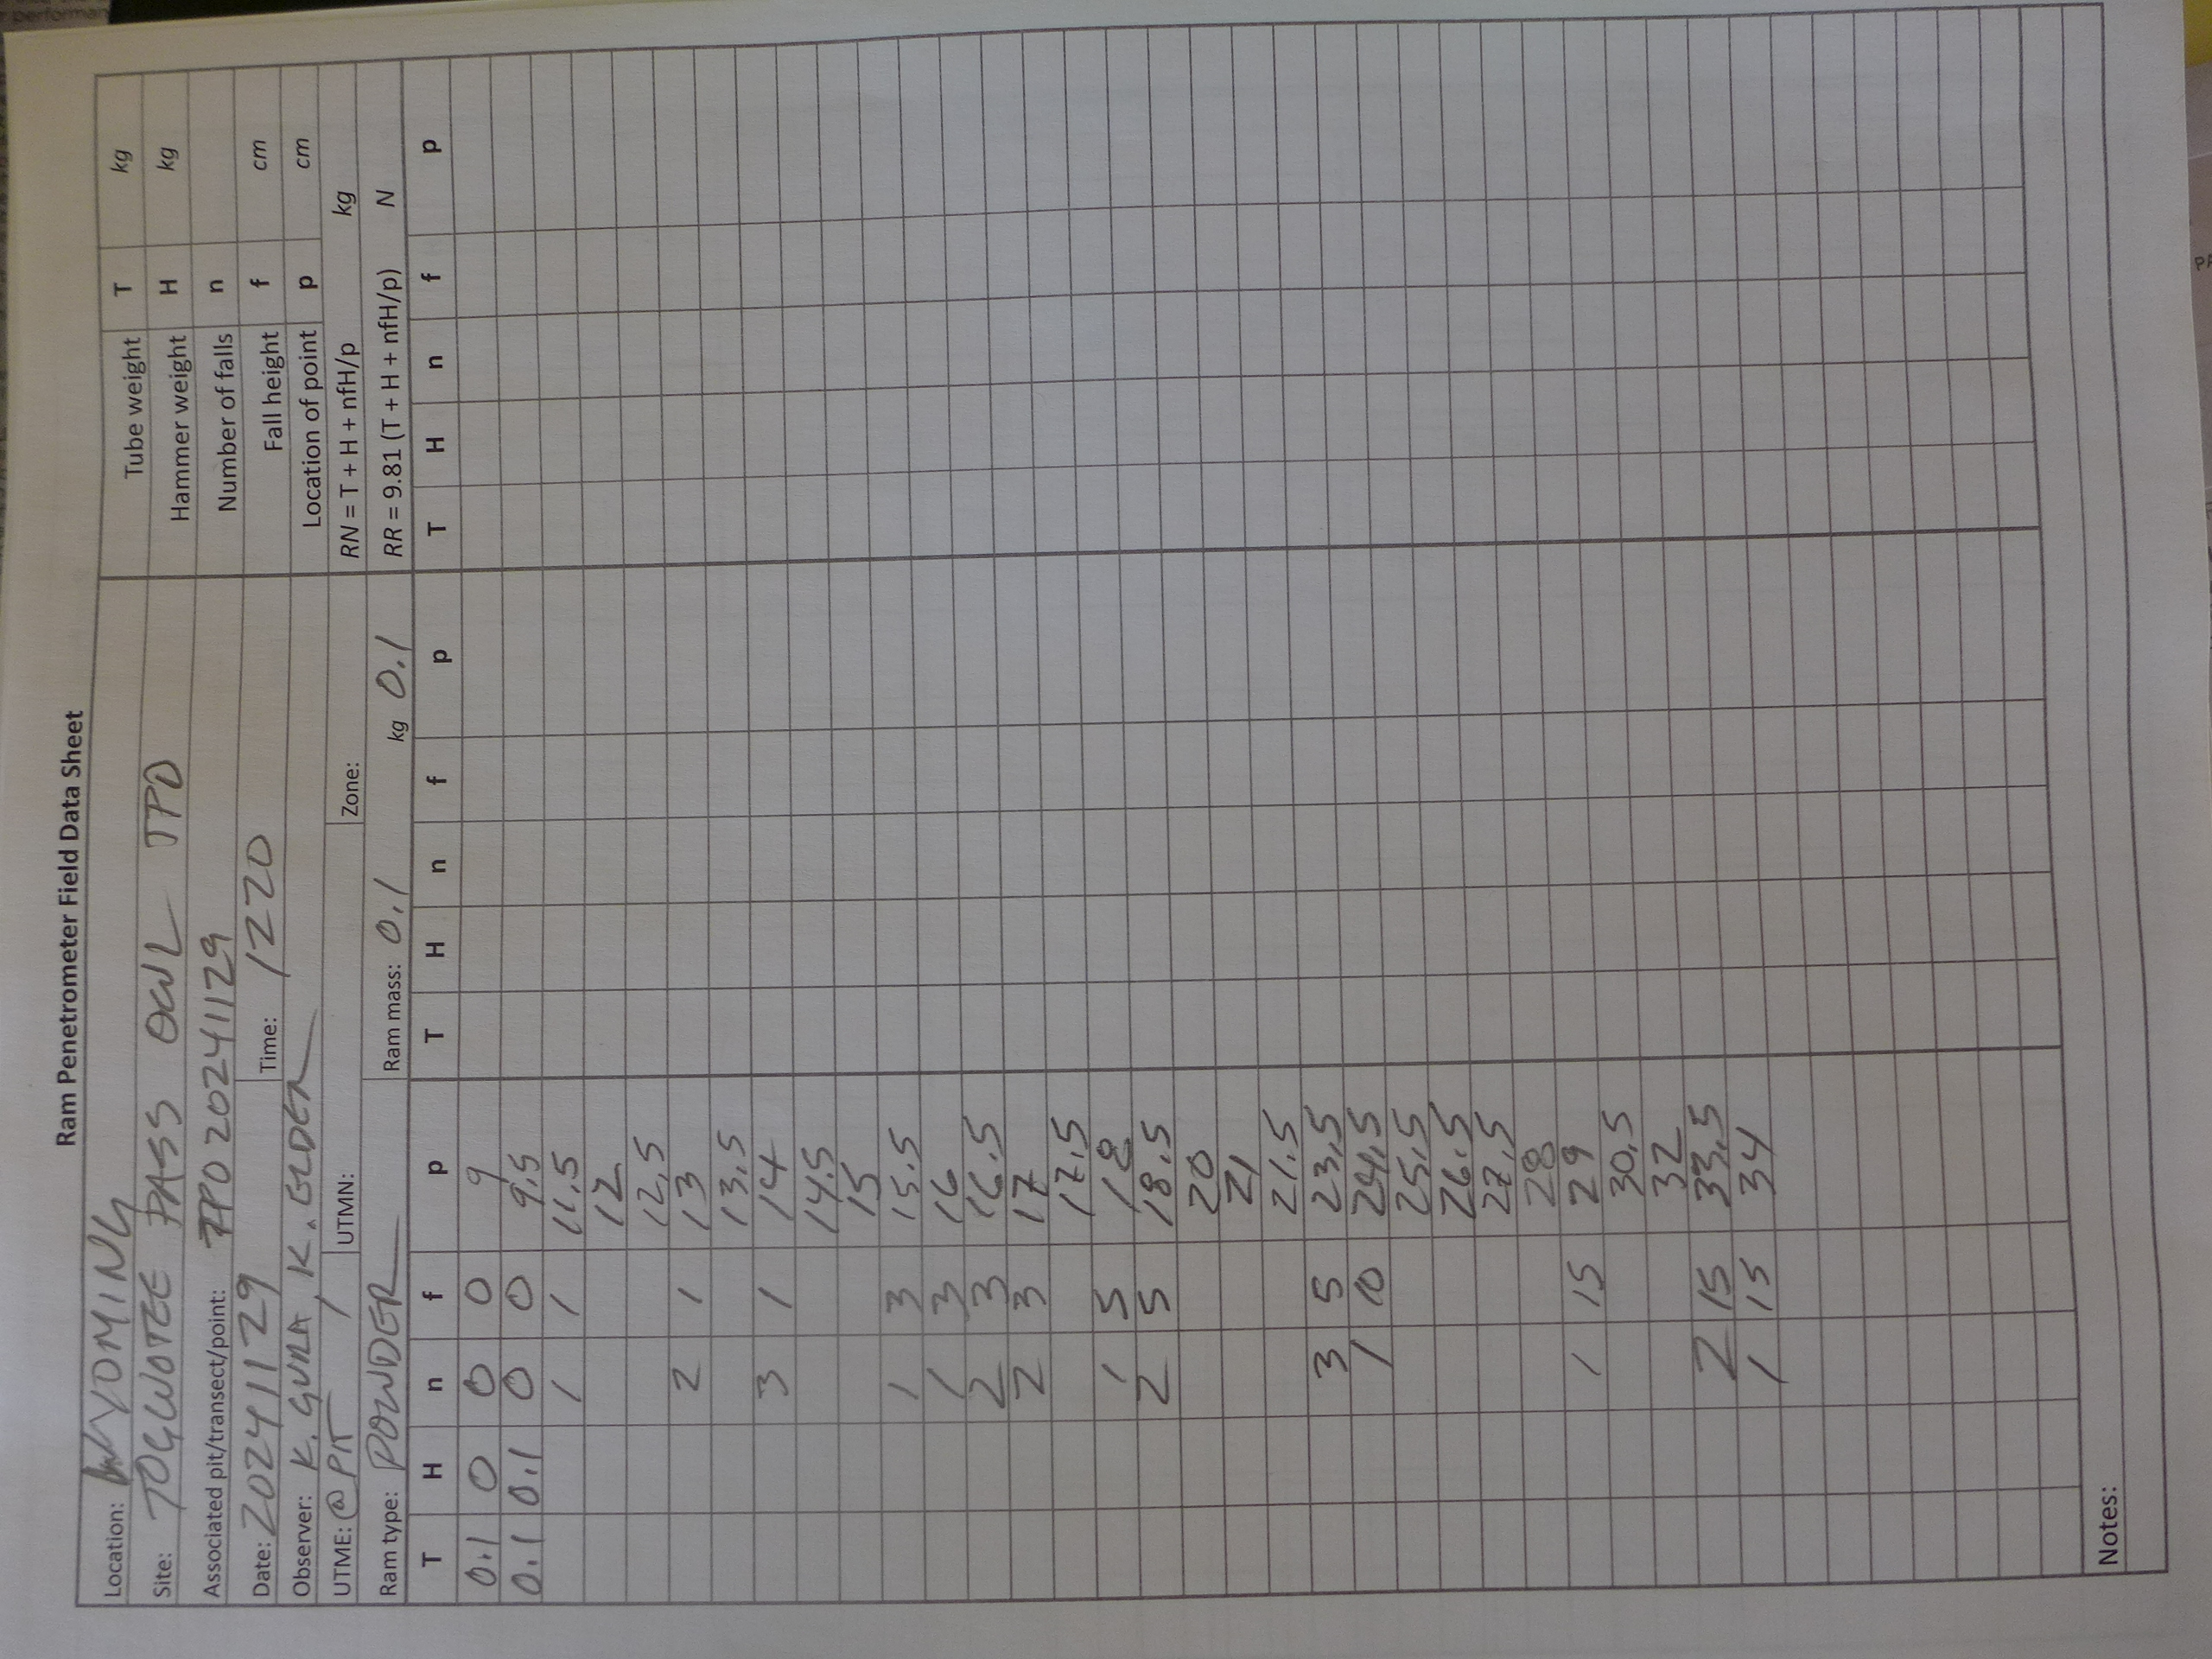 performan
Ram Penetrometer Field Data Sheet
Location: WYOMING
Site: TOGWOTEE PASS OWL TPD
Associated pit/transect/point: TPD 20241129
Date: 20241129 Time: 1220
Observer: K. GURA K. ELDER
UTME: @ PIT UTMN: Zone:
Ram type: POWDER Ram mass: 0.1 kg 0.1
Tube weight T kg
Hammer weight H kg
Number of falls n
Fall height f cm
Location of point p cm
RN = T + H + nfH/p kg
RR = 9.81 (T + H + nfH/p) N
T H n f p T H n f p T H n f p
0.1 0 0 0 9
0.1 0.1 0 0 9.5
1 1 11.5
12
12.5
2 1 13
13.5
3 1 14
14.5
15
1 3 15.5
1 3 16
2 3 16.5
2 3 17
17.5
1 5 18
2 5 18.5
20
21
21.5
3 5 23.5
1 10 24.5
25.5
26.5
27.5
28
1 15 29
30.5
32
2 15 33.5
1 15 34
Notes: